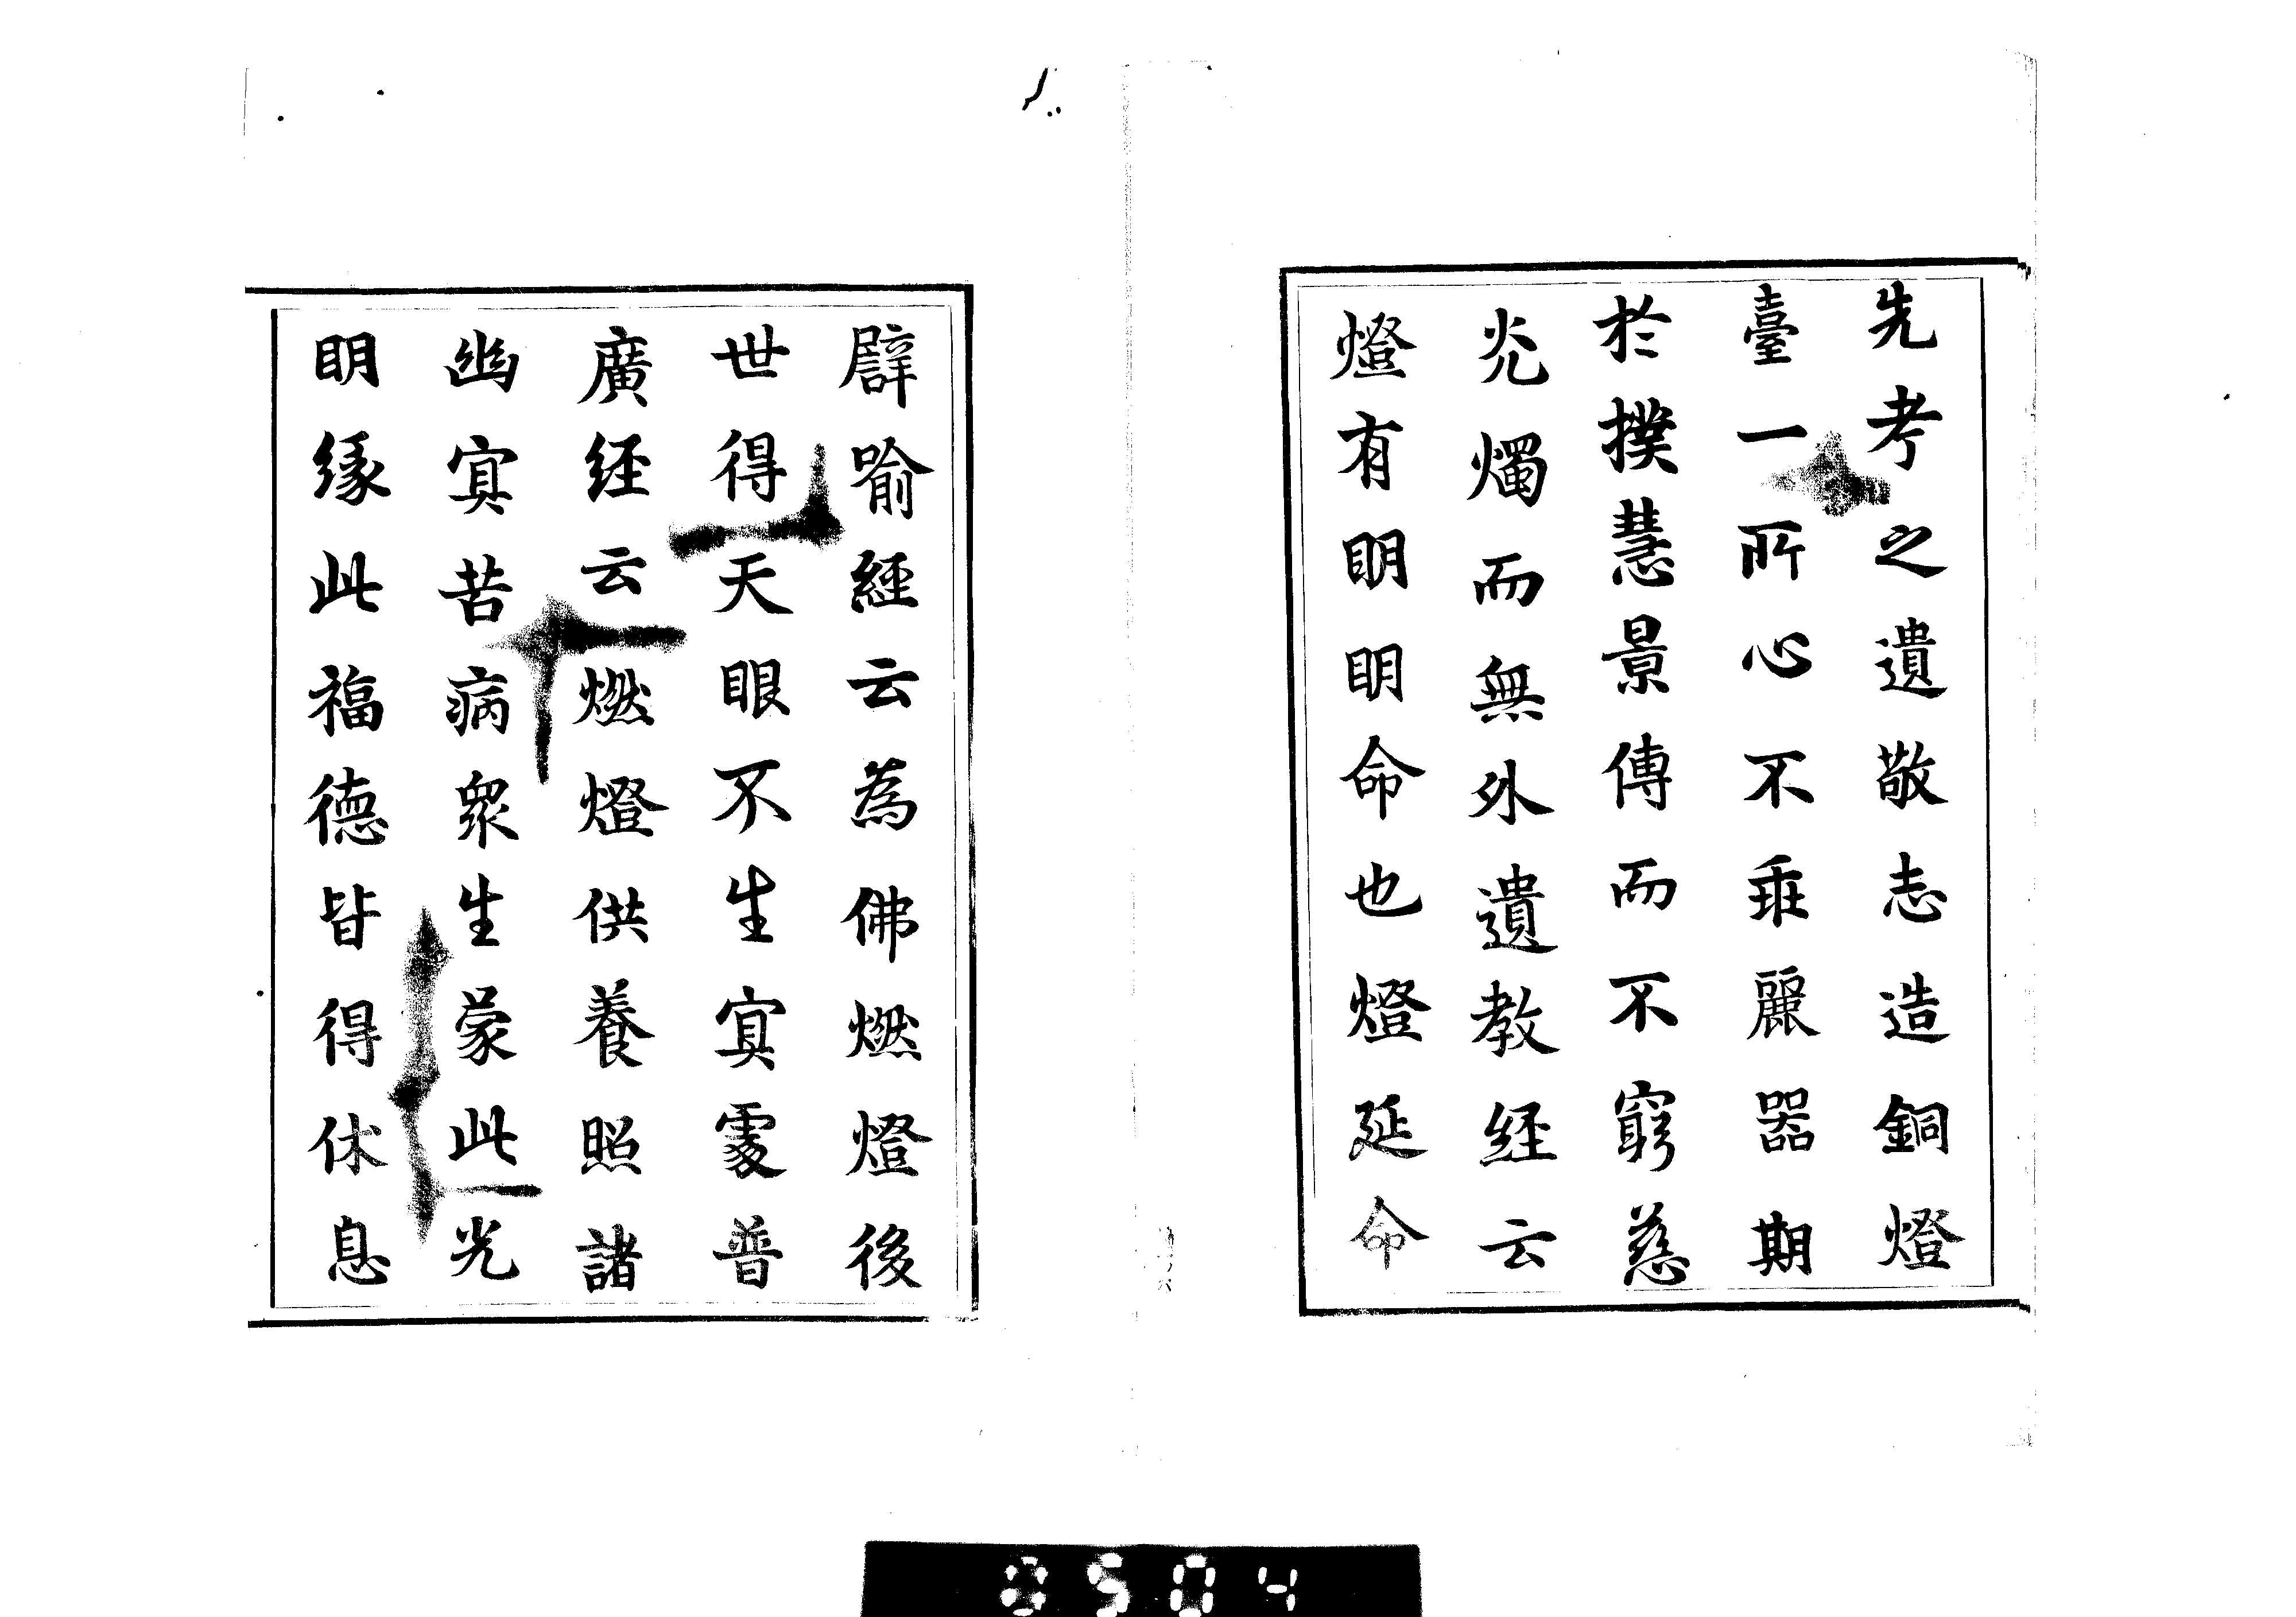 先考之遺敬志造銅燈
臺一所心不乖麗器期
於撲慧景傳而不窮慈
光燭而無外遺教経云
燈有明明命也燈延命
譬喻經云為佛燃燈後
世得天眼不生冥處普
廣経云燃燈供養照諸
幽冥苦病衆生蒙此光
明緣此福德皆得休息
0504